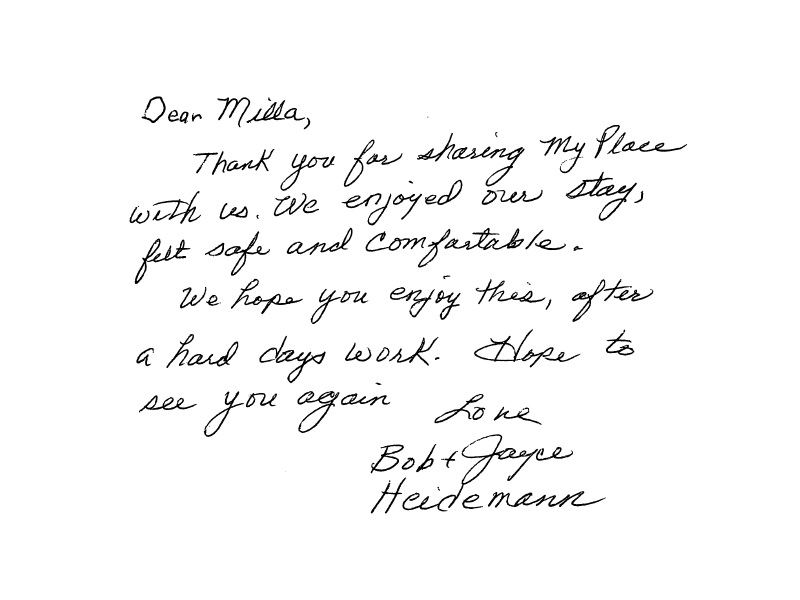 Dear Milla,
Thank you for sharing My Place
with us. We enjoyed our stay,
felt safe and comfortable.
We hope you enjoy this, after
a hard days work. Hope to
see you again
Love
Bob + Jayce
Heidemann